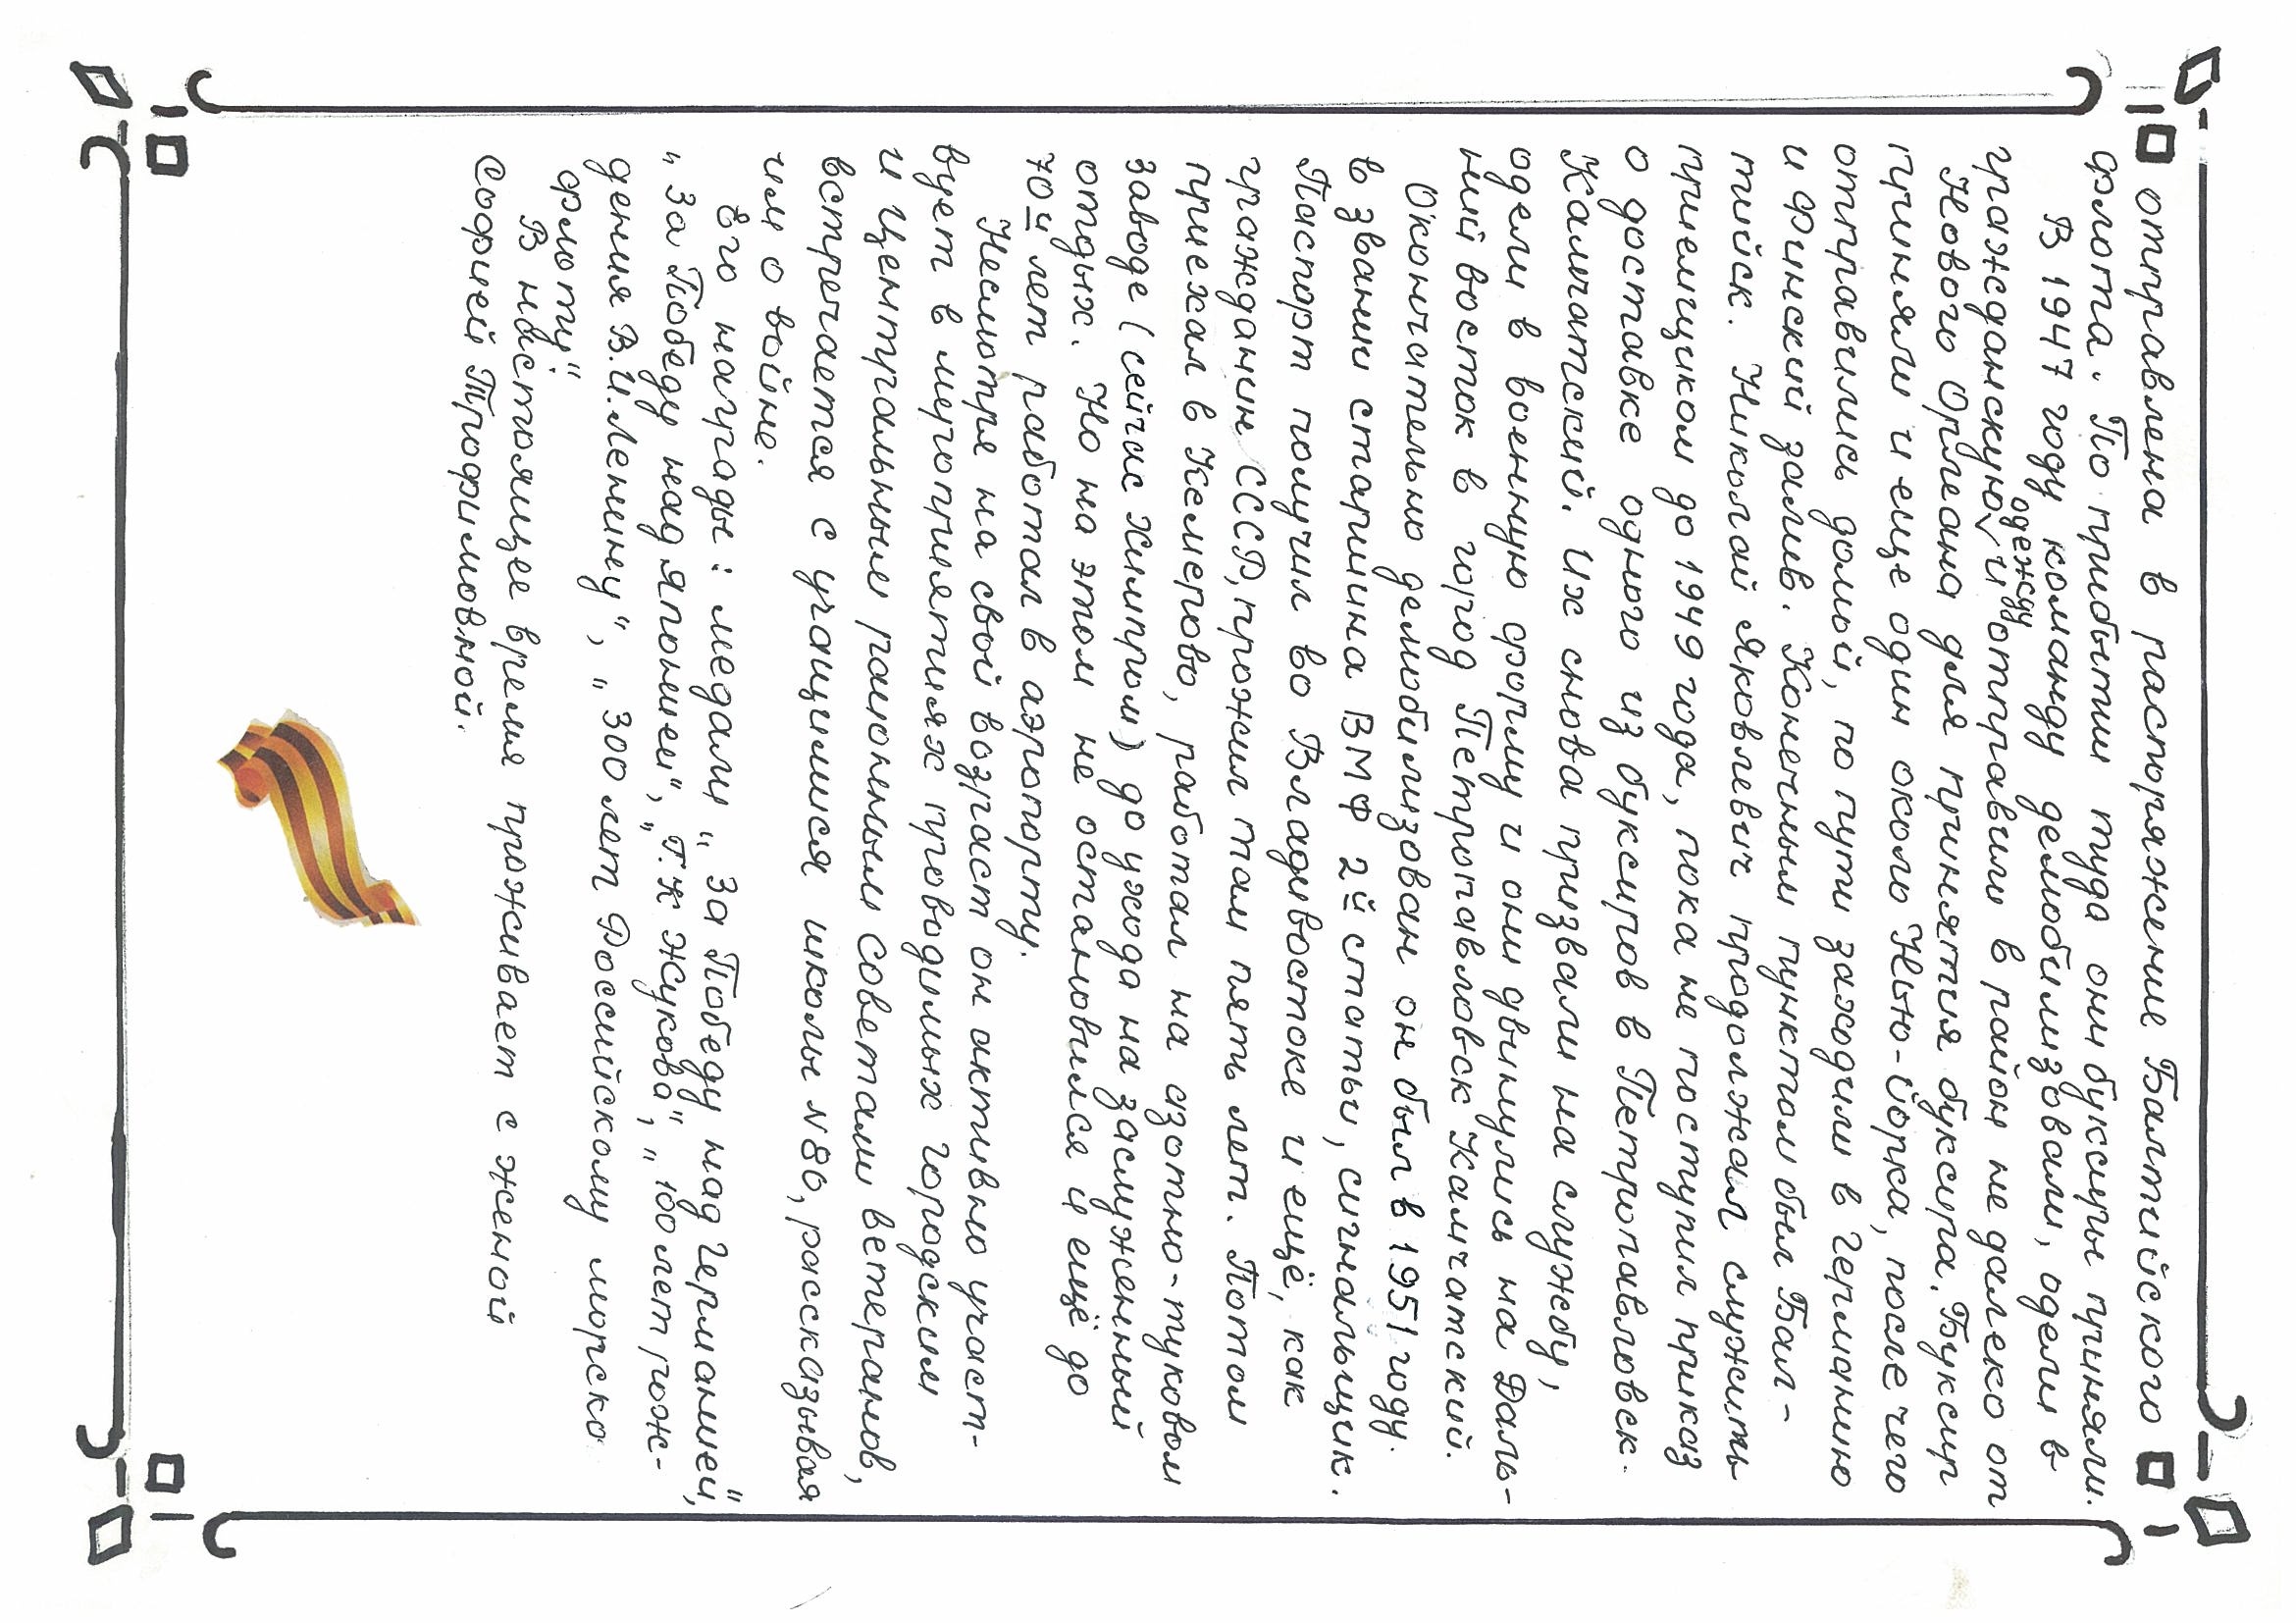 отправлена в распоряжение Балтийского
флота. По прибытии туда они буксиры приняли.
В 1947 году команду демобилизовали, одели в
гражданскую одежду и отправили в район не далеко от
Нового Орлеана для принятия буксира. Буксир
приняли и еще один около Нью-Йорка, после чего
отправились домой, по пути заходили в Германию
и Финский залив. Конечным пунктом был Бал-
тийск. Николай Яковлевич продолжал служить
приемщиком до 1949 года, пока не поступил приказ
о доставке одного из буксиров в Петропавловск-
Камчатский. Их снова призвали на службу,
одели в военную форму и они двинулись на Даль-
ний восток в город Петропавловск Камчатский.
Окончательно демобилизован он был в 1951 году.
в звании старшина ВМФ 2й статьи, сигнальщик.
Паспорт получил во Владивостоке и ещё, как
гражданин СССР, прожил там пять лет. Потом
приехал в Кемерово, работал на азотно-туковом
заводе (сейчас Химпром) до ухода на заслуженный
отдых. Но на этом не остановился и ещё до
70и лет работал в аэропорту.
Несмотря на свой возраст он активно участ-
вует в мероприятиях проводимых городским
и Центральным районным советами ветеранов,
встречается с учащимися школы №80, рассказывая
им о войне.
Его награды: медали „За Победу над Германией",
„За Победу над Японией", „Г.К Жукова", „100 лет рож-
дения В.И.Ленину", „300 лет Российскому морско
флоту"
В настоящее время проживает с женой
Софией Трофимовной.